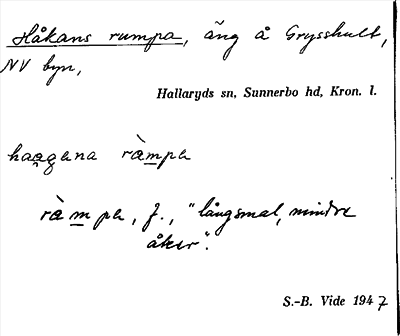 Håkans rumpa, äng å Grysshult,
NV byn,
Hallaryds sn, Sunnerbo hd, Kron. l.
haagana ràmpa
ràmpa, f., "långsmal, mindre
åker".
S.-B. Vide 1947